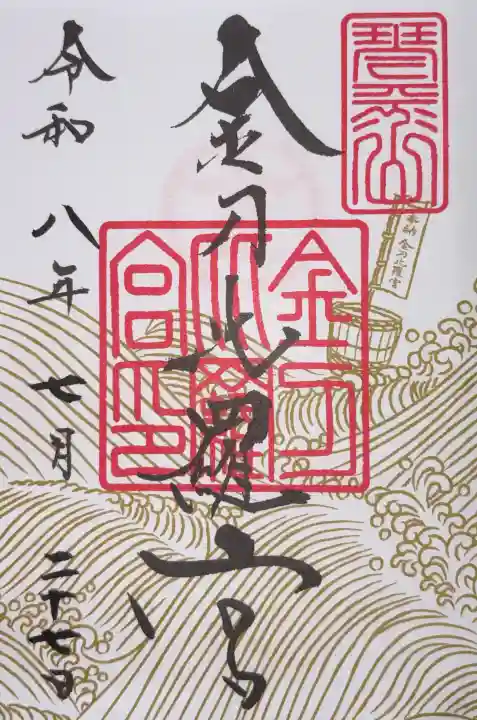 琴平山
奉納 金刀比羅宮
金刀比羅宮
金刀比羅宮印
令和八年七月二十七日